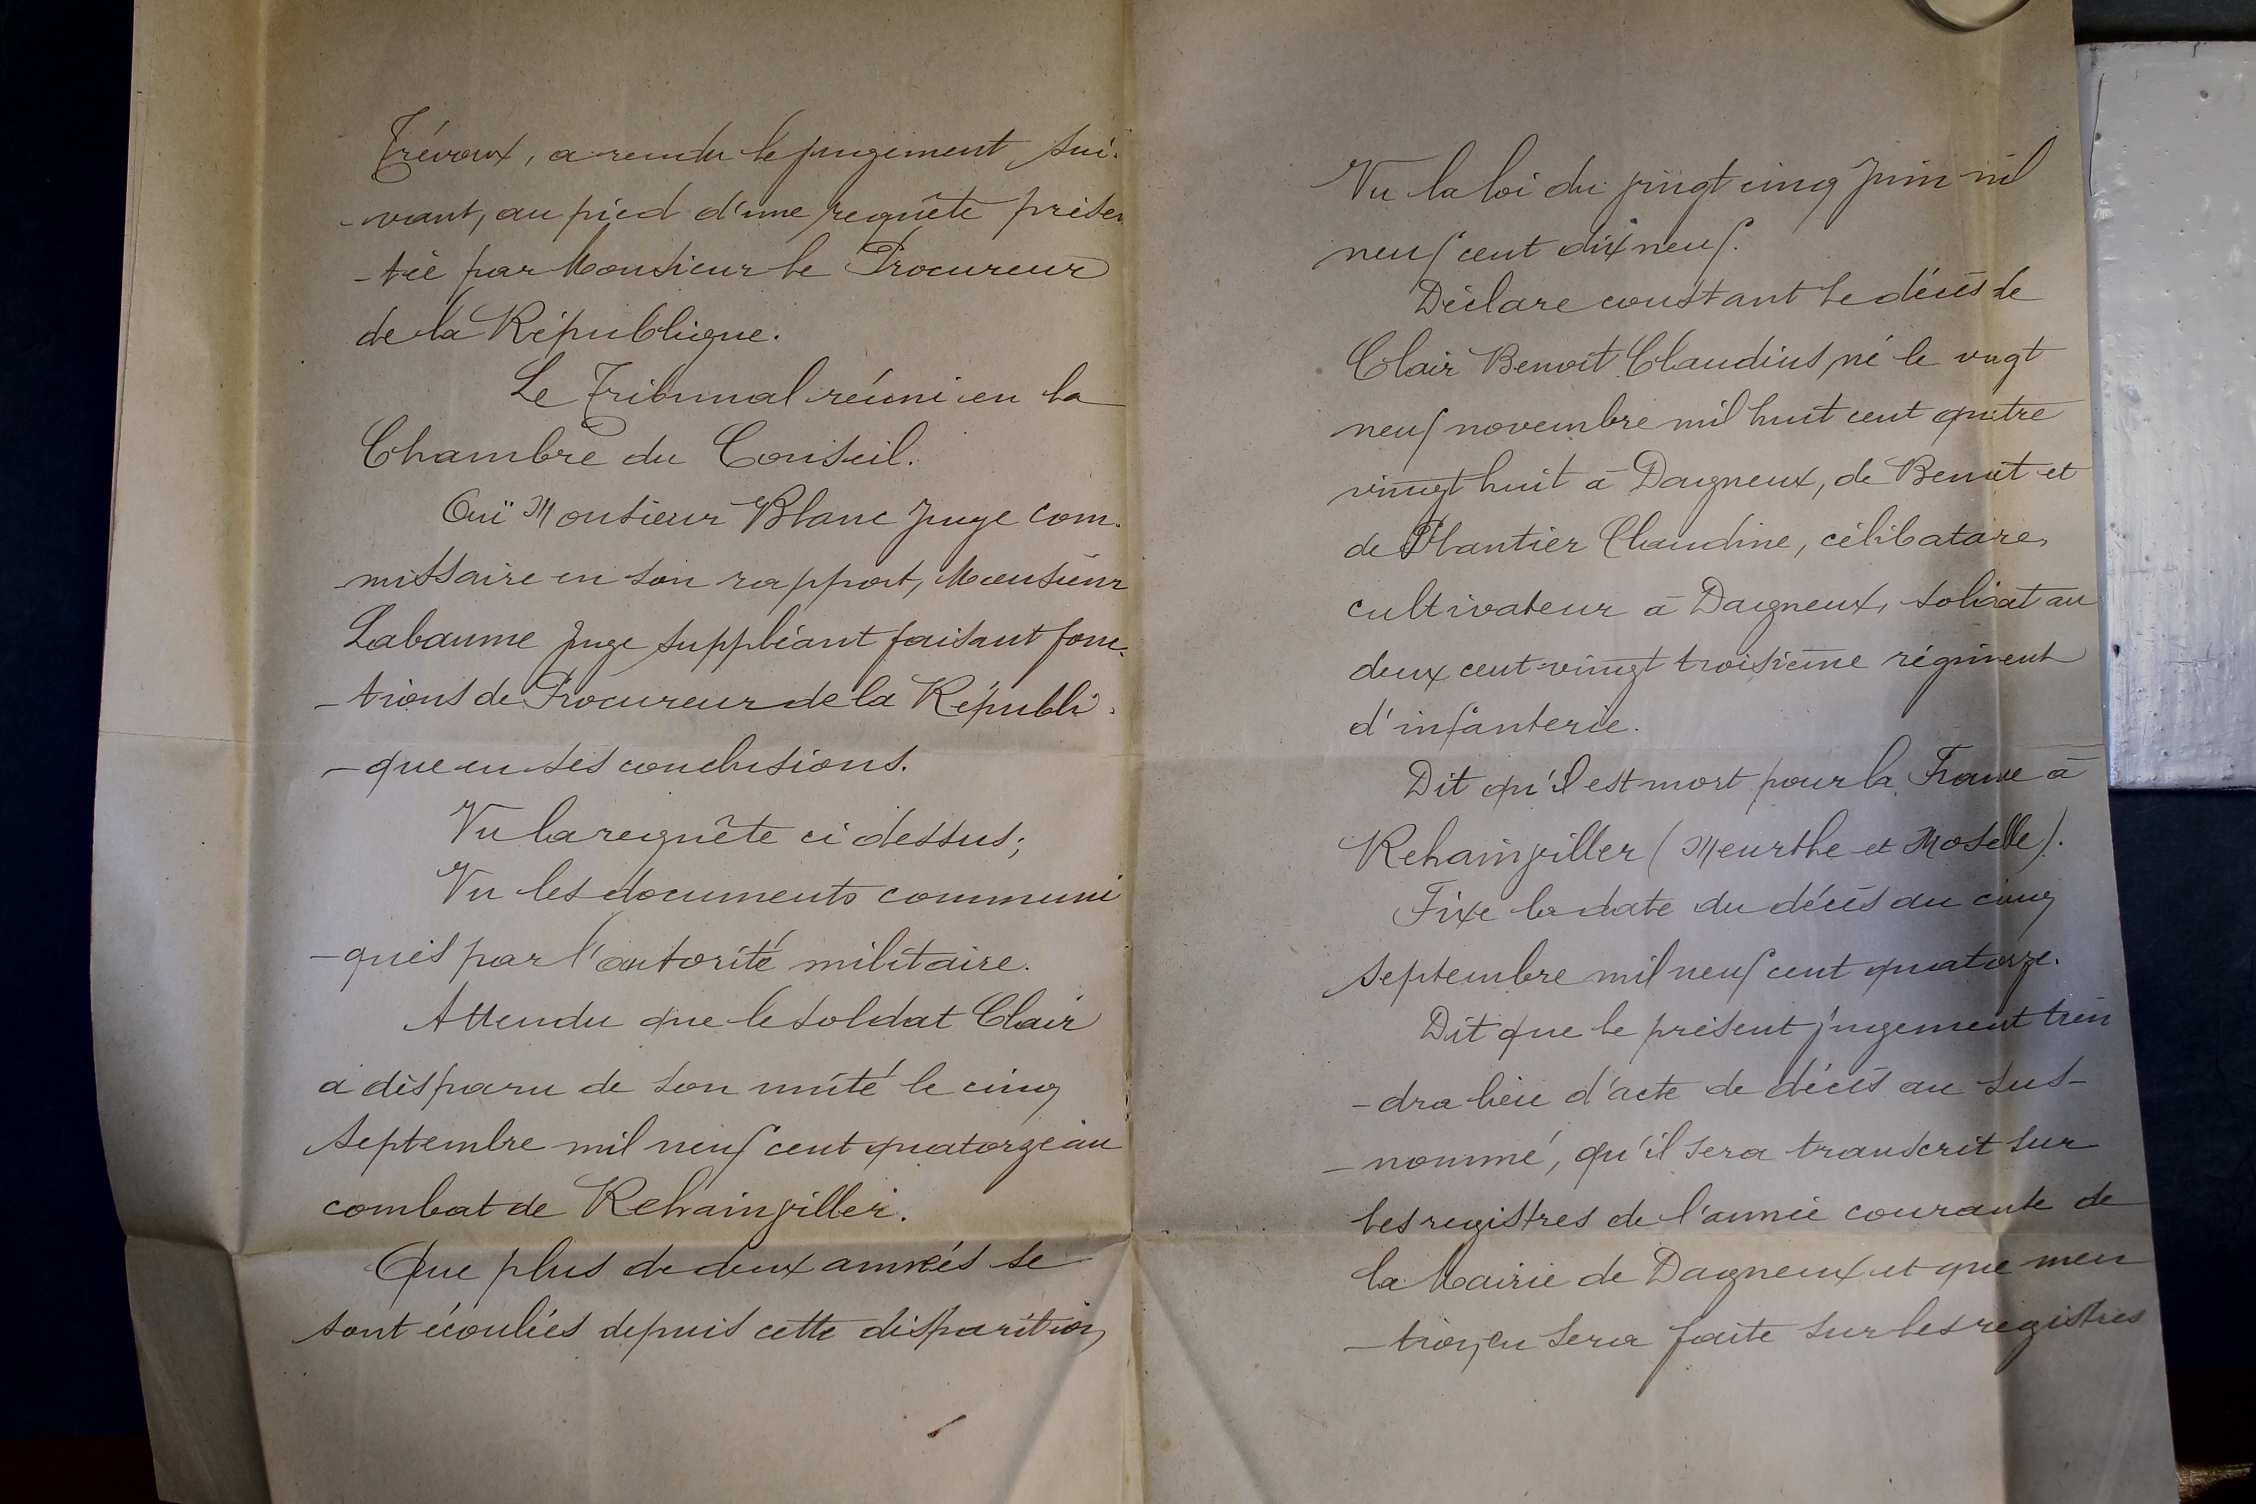 Trévoux, a rendu le jugement sui-
-vant, au pied d'une requête présen
-tée par Monsieur le Procureur
de la République.
Le Tribunal réuni en la
Chambre du Conseil.
Ouï Monsieur Blanc Juge com-
missaire en son rapport, Monsieur
Labaume Juge suppléant faisant fonc-
-tions de Procureur de la Républi-
-que en ses conclusions.
Vu la requête ci dessus;
Vu les documents communi
-qués par l'autorité militaire.
Attendu que le soldat Clair
a disparu de son unité le cinq
septembre mil neuf cent quatorze au
combat de Rehainviller.
Que plus de deux années se
sont écoulées depuis cette disparition,
Vu la loi du vingt cinq Juin mil
neuf cent dix neuf.
Déclare constant le décès de
Clair Benoit Claudius, né le vingt
neuf novembre mil huit cent quatre
vingt huit à Dagneux, de Benoit et
de Plantier Claudine, célibataire,
cultivateur à Dagneux, soldat au
deux cent vingt troisième régiment
d'infanterie.
Dit qu'il est mort pour la France à
Rehainviller (Meurthe et Moselle).
Fixe la date du décès au cinq
septembre mil neuf cent quatorze.
Dit que le présent jugement tien
-dra lieu d'acte de décès au sus-
-nommé, qu'il sera transcrit sur
les registres de l'année courante de
la Mairie de Dagneux et que men
-tion, en sera faite sur les registres